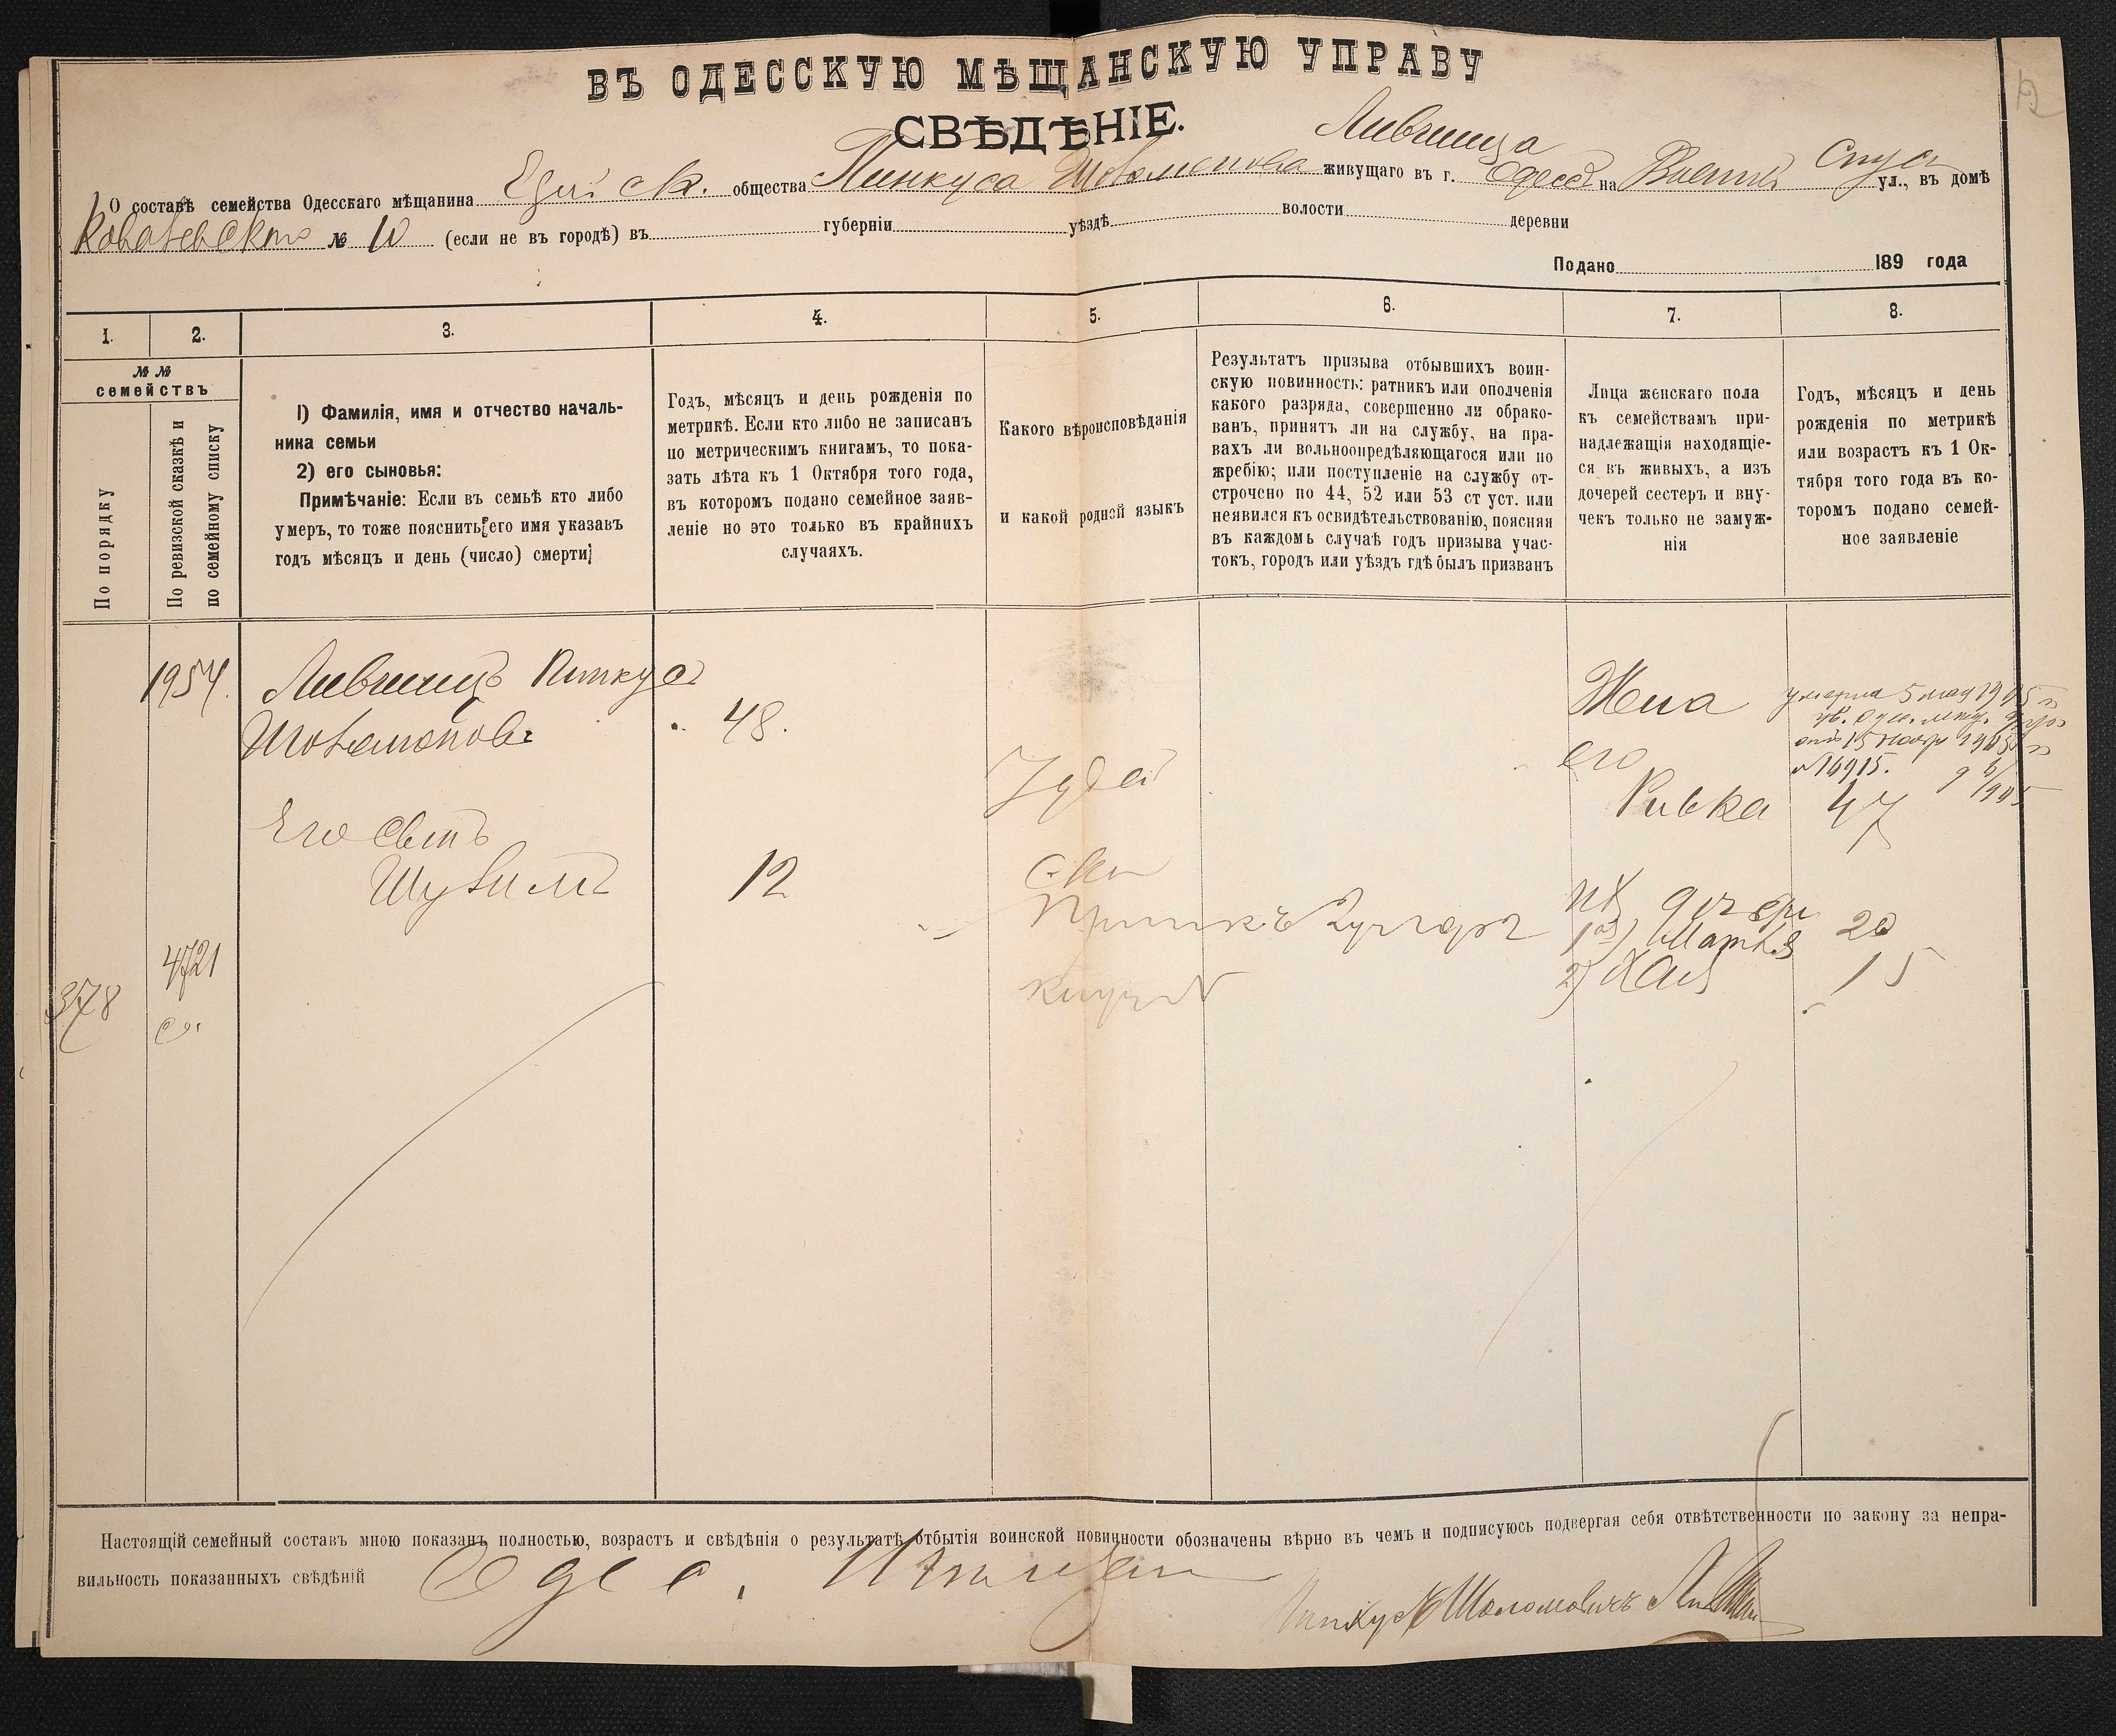 ВЪ ОДЕССКУЮ МѢЩАНСКУЮ УПРАВУ
СВѢДѢНІЕ.
Лившица
О составѣ семейства Одесскаго мѣщанина общества Пинкуса живущаго въ г. Одессѣ на Военный Спуск ул., въ домѣ
№ 10 (если не въ городѣ) въ губерніи уѣздѣ волости деревни
Подано 189 года
1. 2. 3. 4. 5. 6. 7. 8.
№ №
семействъ
По порядку
По ревизской сказкѣ и
по семейному списку
1) Фамилія, имя и отчество началь-
ника семьи
2) его сыновья:
Примѣчаніе: Если въ семьѣ кто либо
умеръ, то тоже пояснить[его имя указавъ
годъ мѣсяцъ и день (число) смерти]
Годъ, мѣсяцъ и день рожденія по
метрикѣ. Если кто либо не записанъ
по метрическимъ книгамъ, то пока-
зать лѣта къ 1 Октября того года,
въ которомъ подано семейное заяв-
леніе но это только въ крайнихъ
случаяхъ.
Какого вѣроисповѣданія
и какой родной языкъ
Результатъ призыва отбывшихъ воин-
скую повинность: ратникъ или ополченія
какого разряда, совершенно ли обрако-
ванъ, принятъ ли на службу, на пра-
вахъ ли вольноопредѣляющагося или по
жребію; или поступленіе на службу от-
строчено по 44, 52 или 53 ст уст. или
неявился къ освидѣтельствованію, поясняя
въ каждомъ случаѣ годъ призыва учас-
токъ, городъ или уѣздъ гдѣ былъ призванъ
Лица женскаго пола
къ семействамъ при-
надлежащія находящіе-
ся въ живыхъ, а изъ
дочерей сестеръ и вну-
чекъ только не замуж-
нія
Годъ, мѣсяцъ и день
рожденія по метрикѣ
или возрастъ къ 1 Ок-
тября того года въ ко-
торомъ подано семей-
ное заявленіе
1954. Лившицъ Пинкусъ
48.
Жена
умерла 5 мая 1905 г
1905 г
№ 16915.
его
Ривка 47
Іудей
Его сынъ
12
ихъ дочери
1) 20
2) Хая 15
4721
378
Настоящій семейный составъ мною показанъ полностью, возрастъ и свѣдѣнія о результатѣ отбытія воинской повинности обозначены вѣрно въ чемъ и подписуюсь подвергая себя отвѣтственности по закону за непра-
вильность показанныхъ свѣдѣній
Пинкусъ Шоломовичъ